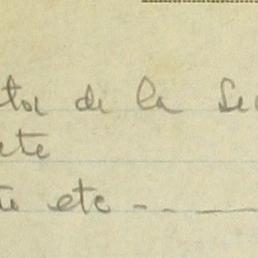 tor de la Se
ete
te etc - . —